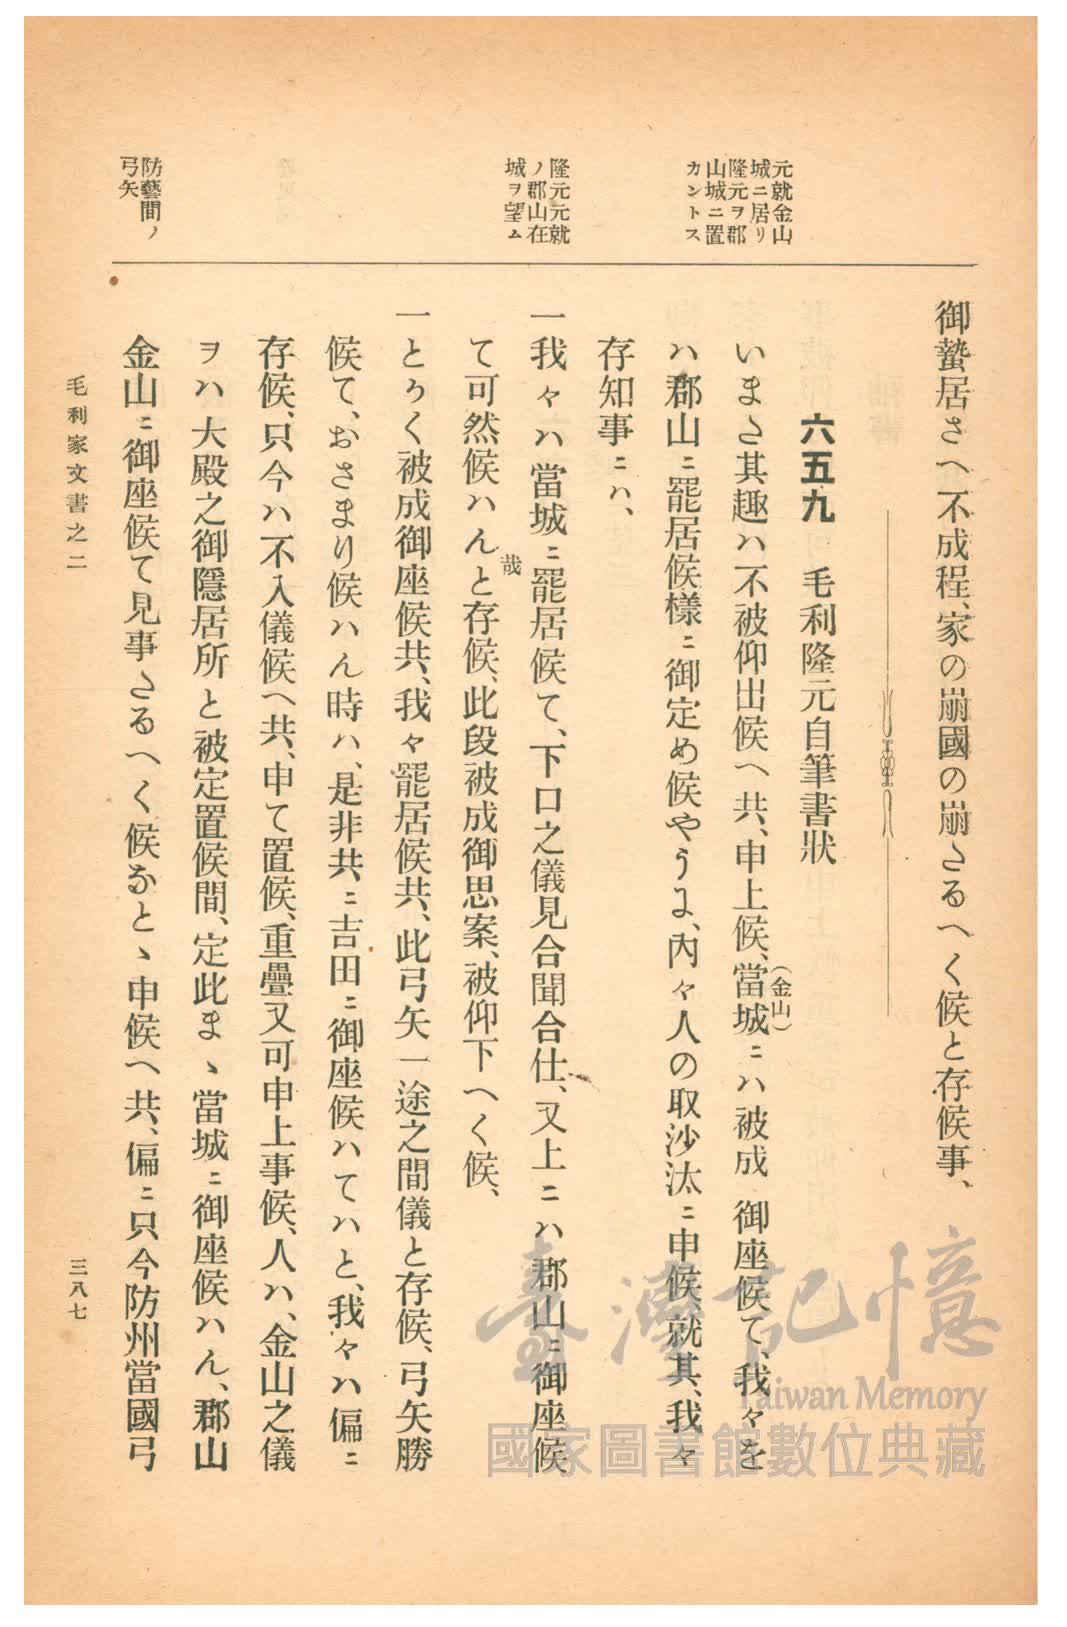 元就金山
城ニ居リ
隆元ヲ郡
山城ニ置
カントス
隆元元就
ノ郡山在
城ヲ望ム
防藝間ノ
弓矢
御蟄居さへ不成程、家の崩國の崩たるへく候と存候事、
六五九 毛利隆元自筆書狀
いまた其趣ハ不被仰出候へ共、申上候、當城ニハ被成 御座候て、我々を
(金山)
ハ郡山ニ罷居候樣ニ御定め候やうに、內々人の取沙汰ニ申候、就其、我々
存知事ニハ、
一我々ハ當城ニ罷居候て、下口之儀見合聞合仕、又上ニハ郡山ニ御座候
て可然候ハんと存候、此段被成御思案、被仰下へく候、
哉
一とかく被成御座候共、我々罷居候共、此弓矢一途之間儀と存候、弓矢勝
候て、おさまり候ハん時ハ、是非共ニ吉田ニ御座候ハてハと、我々ハ偏ニ
存候、只今ハ不入儀候へ共、申て置候、重疊又可申上事候、人ハ、金山之儀
ヲハ大殿之御隱居所と被定置候間、定此まゝ當城ニ御座候ハん、郡山
金山ニ御座候て見事たるへく候なとゝ申候へ共、偏ニ只今防州當國弓
毛利家文書之二
三八七
臺灣記憶
Taiwan Memory
國家圖書館數位典藏